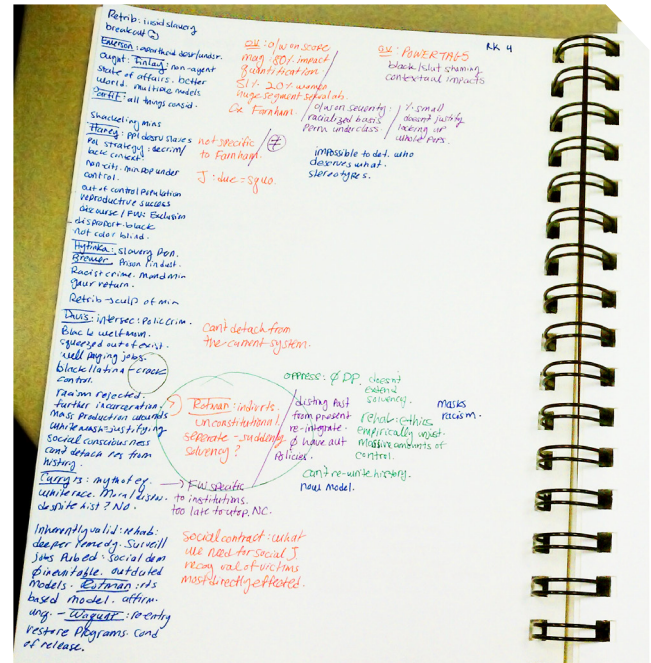 Retrib: insid slavery
breakout
Emerson: apartheid desr/undsr.
Ought: Finlay: non-agent
state of affairs. better
world. multiple models
all things consid.
shackeling mins
Haney: ppl desrv slaves
Pol strategy: decrim/
lack context
min pop under
control.
out of control population
reproductive success
discourse/FW: Exclusion
disproport-black
not color blind.
slavery Pon.
Brewer Prison lindust.
Racist crime. Mand min
return.
Retrib → sculp of min
Davis: intersec: Policrim.
Black welf mom.
squeezed out of exist.
well paying jobs.
black/latina + crack
control.
racism rejected.
further incarceration.
Mass production wounds
white mask = justifying
social consciousness
can't detach res from
history.
Curry 13: myth of eq.
white race. Moral
despite hist? No.
Inherently valid: rehab:
deeper remedy. Surveill
jobs Pub ed: social dem
Ø inevitable. outdated
models. Rotman: rts
based model. affirm.
ang. - Waquar: re-entry
restore Programs. cond
of release.
OV: o/w on scope
mag: 80% impact
quantification
51% 20% women
huge segment sexual ab.
Da Farnham.
not specific
to Farnham.
J: due = squo.
o/w on severity
racialized basis
Perm underclass
% small
doesnt justify
locking up
whole Pers.
impossible to det. who
deserves what.
stereotypes.
OV: POWERTAGS
black/slut shaming
contextual impacts
RK 4
can't detach from
the current system.
Rotman: indivrts.
unconstitutional.
seperate - suddenly
solvency?
→ FW specific
to institutions.
too late to utop. NC.
oppress: Ø DP.
doesn't
extend
solvency.
disting Past
from present
re-integrate.
Ø have aut
Policies.
rehab: ethics
empirically unjust.
Massive amounts of
control.
masks
racism.
can't re-write history.
new model.
Social contract: what
we need for social J
recog val of victims
most directly effected.